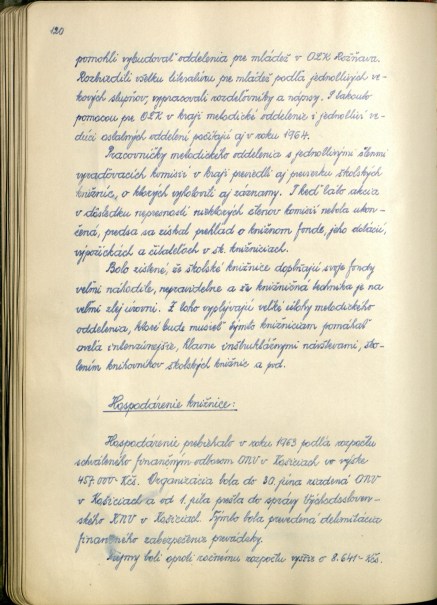 120
pomohli vybudovať oddelenia pre mládež v OĽK Rožňava.
Roztriedili všetku literatúru pre mládež podľa jednotlivých ve-
kových stupňov, vypracovali rozdeľovníky a nápisy. S takouto
pomocou pre OĽK v kraji metodické oddelenie i jednotliví ve-
dúci ostatných oddelení počítajú aj v roku 1964.
Pracovníčky metodického oddelenia s jednotlivými členmi
vyraďovacích komisií v kraji previedli aj previerku školských
knižníc, o ktorých vyhotovili aj záznamy. I keď táto akcia
v dôsledku nepresnosti niektorých členov komisií nebola ukon-
čená, predsa sa získal prehľad o knižnom fonde, jeho dotácii,
výpožičkách a čitateľoch v šk. knižniciach.
Bolo zistené, že školské knižnice doplňujú svoje fondy
veľmi náhodile, nepravidelne a že knižničná technika je na
veľmi zlej úrovni. Z toho vyplývajú veľké úlohy metodického
oddelenia, ktoré bude musieť týmto knižniciam pomáhať
oveľa intenzívnejšie, hlavne inštrukčnými návštevami, ško-
lením knihovníkov školských knižníc a pod.
Hospodárenie knižnice:
Hospodárenie prebiehalo v roku 1963 podľa rozpočtu
schváleného finančným odborom ONV v Košiciach vo výške
457.000 Kčs. Organizácia bola do 30. júna riadená ONV
v Košiciach a od 1. júla prešla do správy Východosloven-
ského KNV v Košiciach. Týmto bola prevedená delimitácia
finančného zabezpečenia prevádzky.
Príjmy boli oproti ročnému rozpočtu vyššie o 8.641 Kčs.